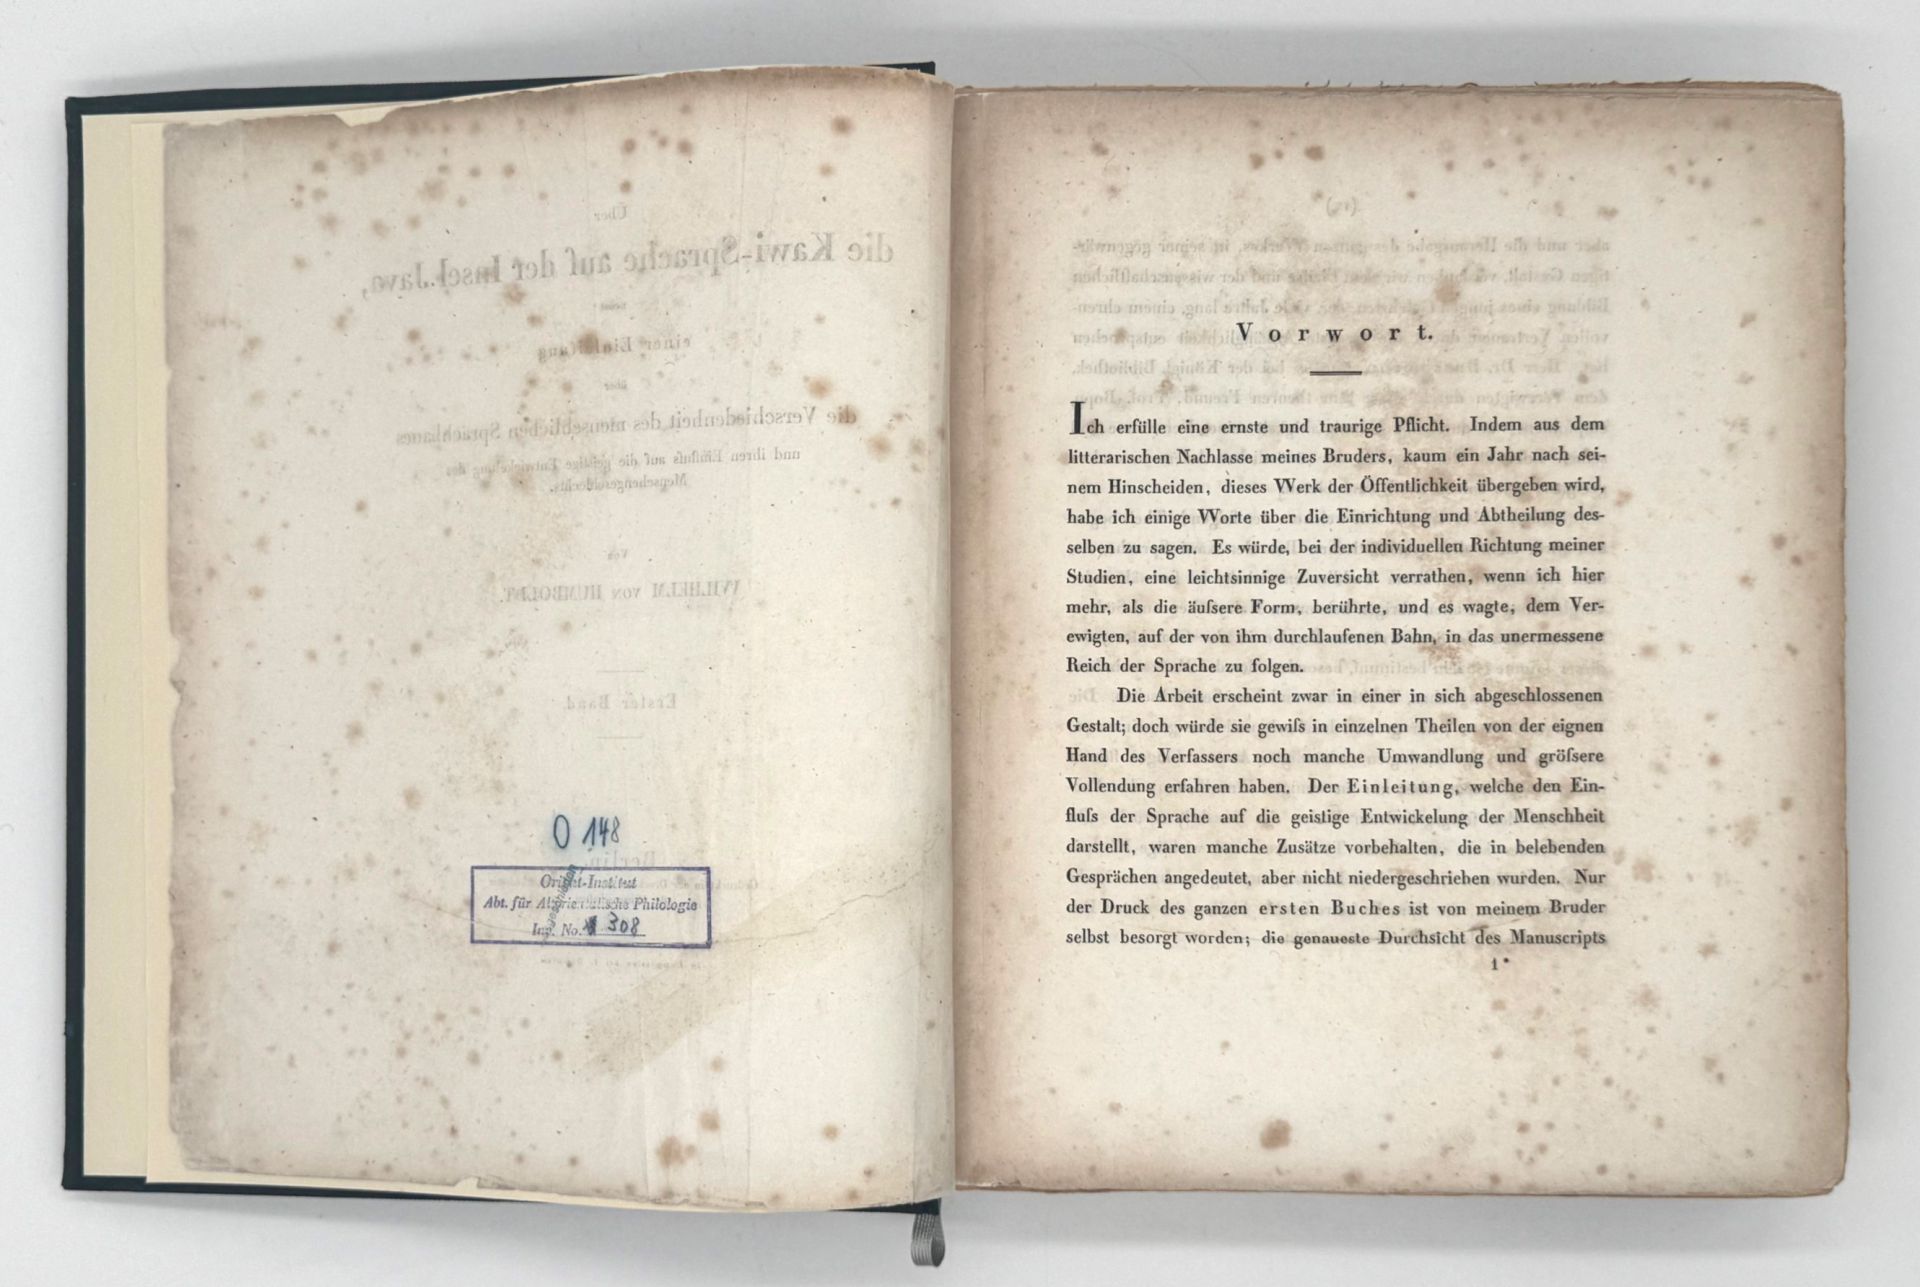 Über
die Kawi-Sprache auf der Insel Java,
nebst
einer Einleitung
über
die Verschiedenheit des menschlichen Sprachbaues
und ihren Einfluſs auf die geistige Entwickelung des
Menschengeschlechts.
Von
WILHELM VON HUMBOLDT.
Erster Band.
O 148
Berlin.
Orient-Institut
Abt. für Altorientalische Philologie
Inv. No. 308
Vorwort.
Ich erfülle eine ernste und traurige Pflicht. Indem aus dem
litterarischen Nachlasse meines Bruders, kaum ein Jahr nach sei-
nem Hinscheiden, dieses Werk der Öffentlichkeit übergeben wird,
habe ich einige Worte über die Einrichtung und Abtheilung des-
selben zu sagen. Es würde, bei der individuellen Richtung meiner
Studien, eine leichtsinnige Zuversicht verrathen, wenn ich hier
mehr, als die äuſsere Form, berührte, und es wagte, dem Ver-
ewigten, auf der von ihm durchlaufenen Bahn, in das unermessene
Reich der Sprache zu folgen.
Die Arbeit erscheint zwar in einer in sich abgeschlossenen
Gestalt; doch würde sie gewiſs in einzelnen Theilen von der eignen
Hand des Verfassers noch manche Umwandlung und gröſsere
Vollendung erfahren haben. Der Einleitung, welche den Ein-
fluſs der Sprache auf die geistige Entwickelung der Menschheit
darstellt, waren manche Zusätze vorbehalten, die in belebenden
Gesprächen angedeutet, aber nicht niedergeschrieben wurden. Nur
der Druck des ganzen ersten Buches ist von meinem Bruder
selbst besorgt worden; die genaueste Durchsicht des Manuscripts
1*